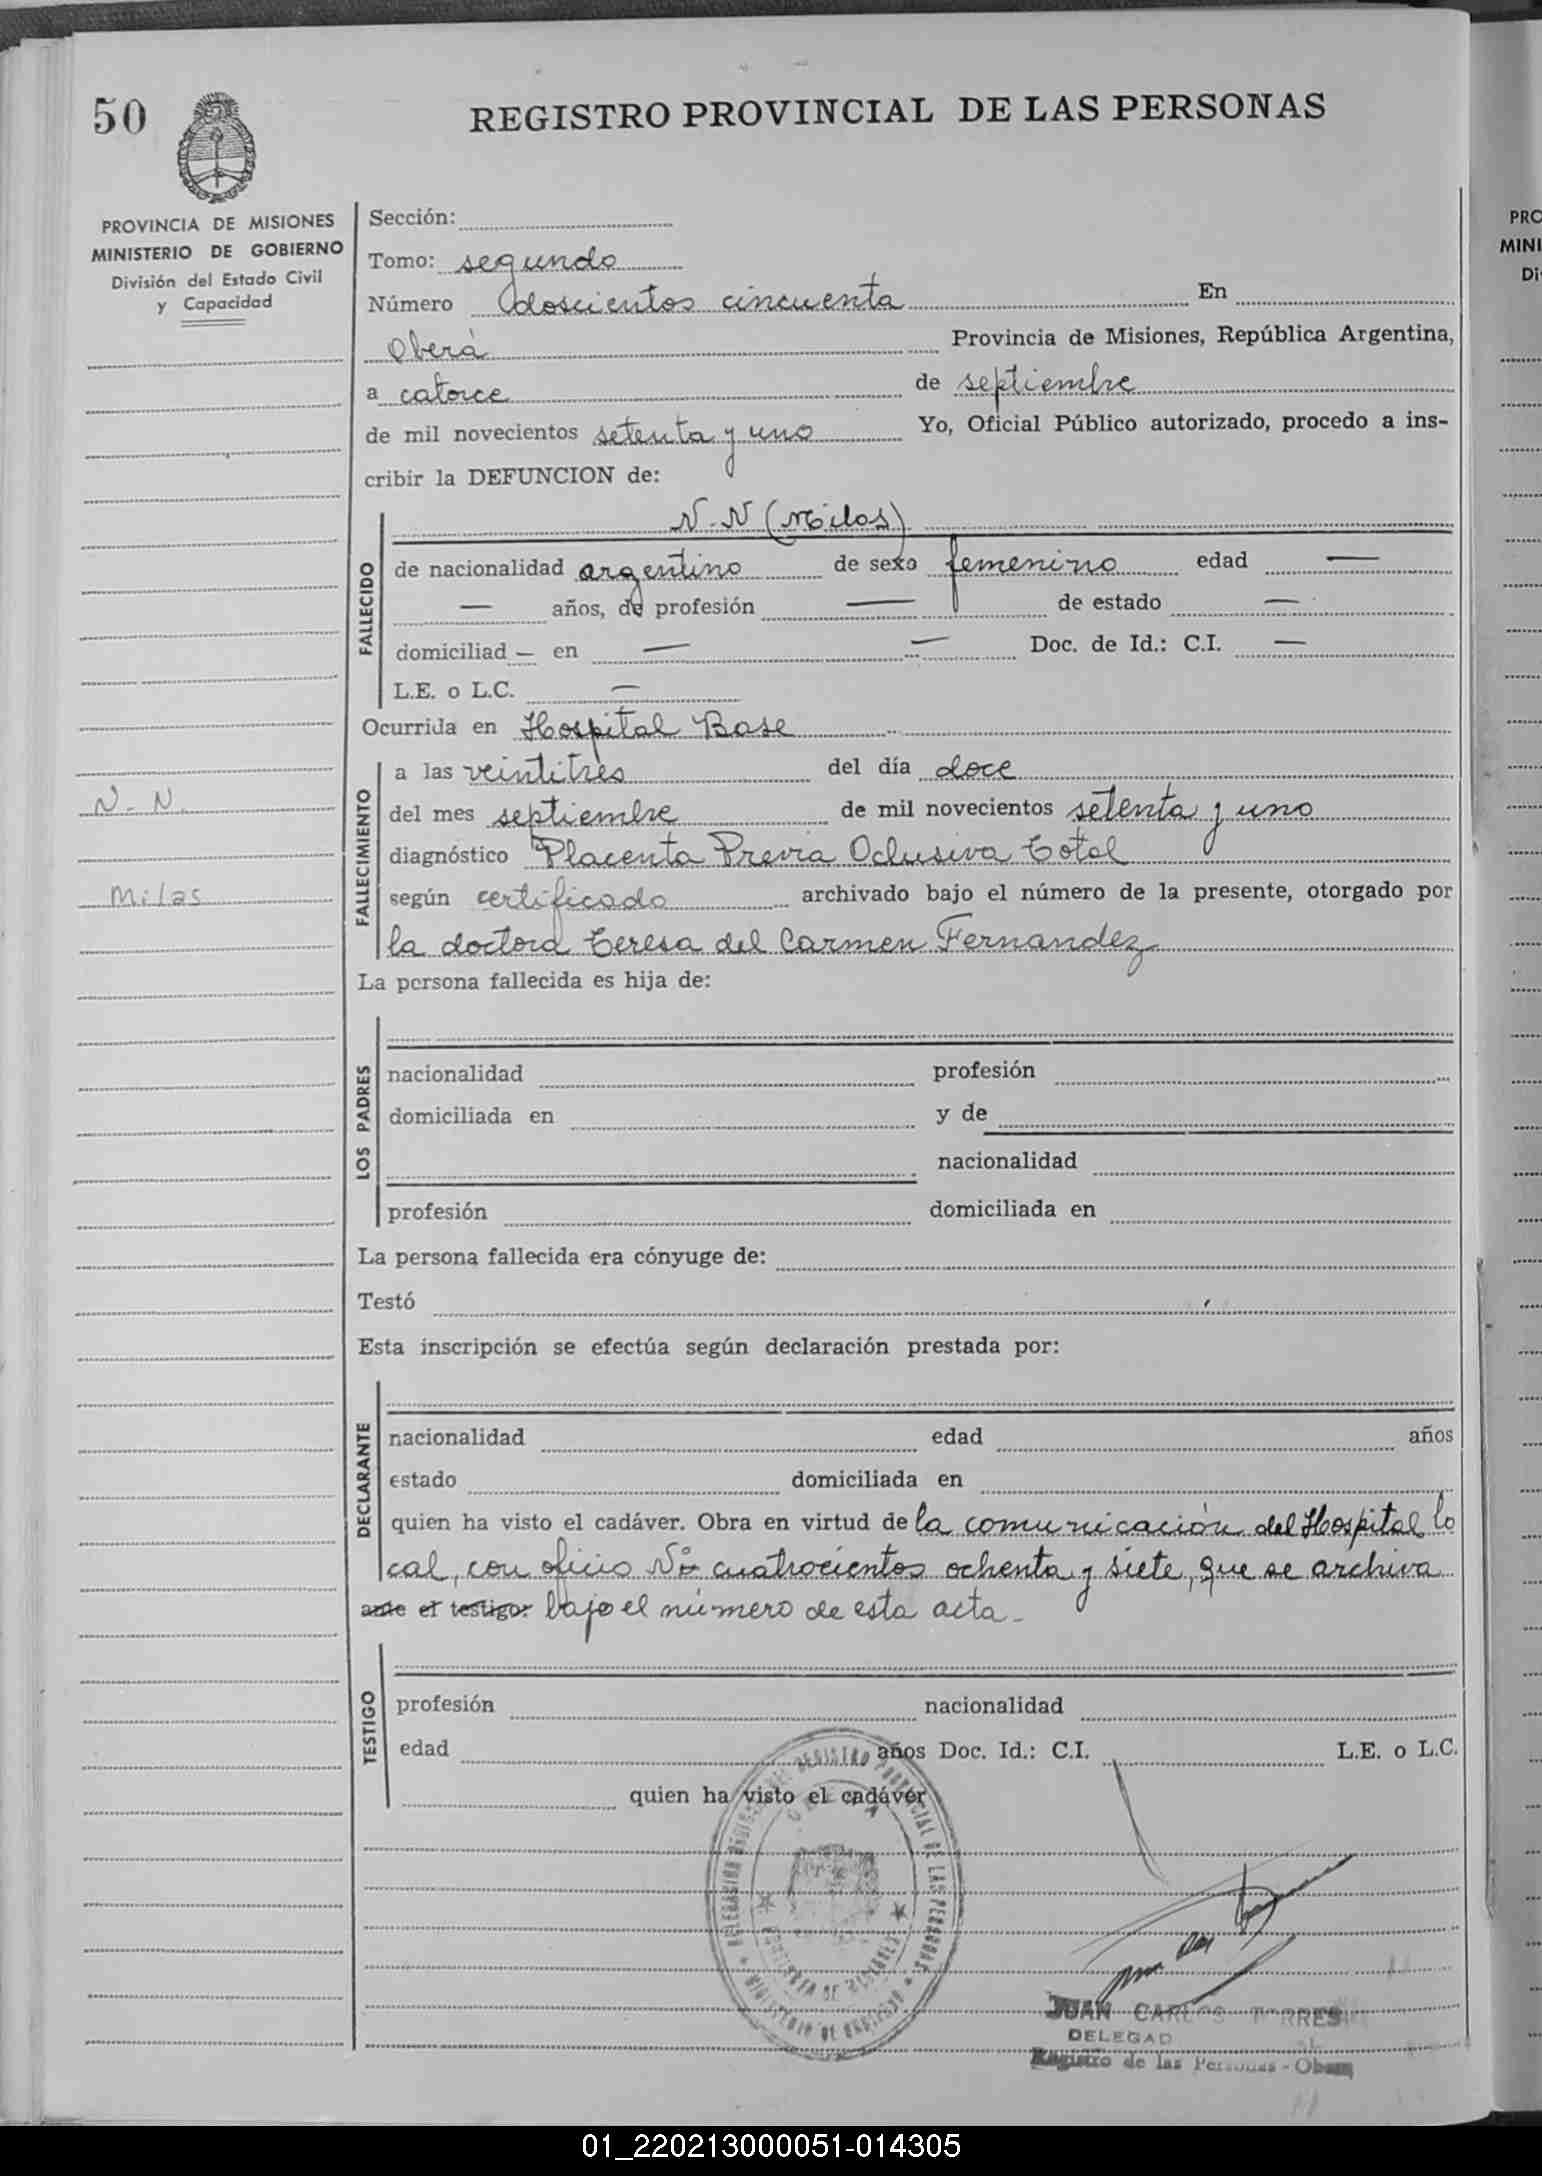 50
REGISTRO PROVINCIAL DE LAS PERSONAS
PROVINCIA DE MISIONES
MINISTERIO DE GOBIERNO
División del Estado Civil
y Capacidad
Sección:
Tomo: segundo
Número doscientos cincuenta En
Oberá Provincia de Misiones, República Argentina,
a catorce de septiembre
de mil novecientos setenta y uno Yo, Oficial Público autorizado, procedo a ins-
cribir la DEFUNCION de:
FALLECIDO
N-N (Milos)
de nacionalidad argentino de sexo femenino edad —
— años, de profesión — de estado —
domiciliad — en — — Doc. de Id.: C.I. —
L.E. o L.C. —
Ocurrida en Hospital Base
FALLECIMIENTO
a las veintitrés del día doce
N-N.
del mes septiembre de mil novecientos setenta y uno
diagnóstico Placenta Previa Oclusiva Total
Milas
según certificado archivado bajo el número de la presente, otorgado por
la doctora Teresa del Carmen Fernandez
La persona fallecida es hija de:
LOS PADRES
nacionalidad profesión
domiciliada en y de
nacionalidad
profesión domiciliada en
La persona fallecida era cónyuge de:
Testó
Esta inscripción se efectúa según declaración prestada por:
DECLARANTE
nacionalidad edad años
estado domiciliada en
quien ha visto el cadáver. Obra en virtud de la comunicación del Hospital lo
cal, con oficio Nº cuatrocientos ochenta y siete, que se archiva
ante el testigo: bajo el número de esta acta-
TESTIGO
profesión nacionalidad
edad años Doc. Id.: C.I. L.E. o L.C.
quien ha visto el cadáver
REGISTRO PROVINCIAL DE LAS PERSONAS
JUAN CARLOS TORRES
DELEGAD
Registro de las Personas - Oberá
PRO
MINI
Di
01_220213000051-014305